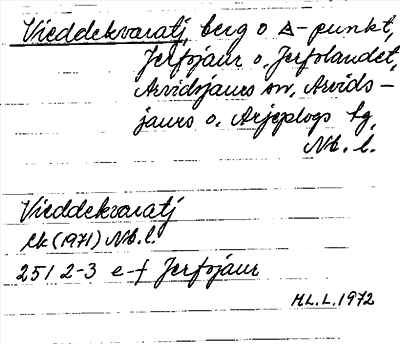 Vieddekvaratj, berg o △-punkt,
Jerfojaur o. Jerfolandet,
Arvidsjaurs sn, Arvids-
jaurs o. Arjeplogs tg,
Nb. l.
Vieddekvaratj
Ek (1971) Nb. l.
25I 2-3 e-f Jerfojaur
H.L.L. 1972